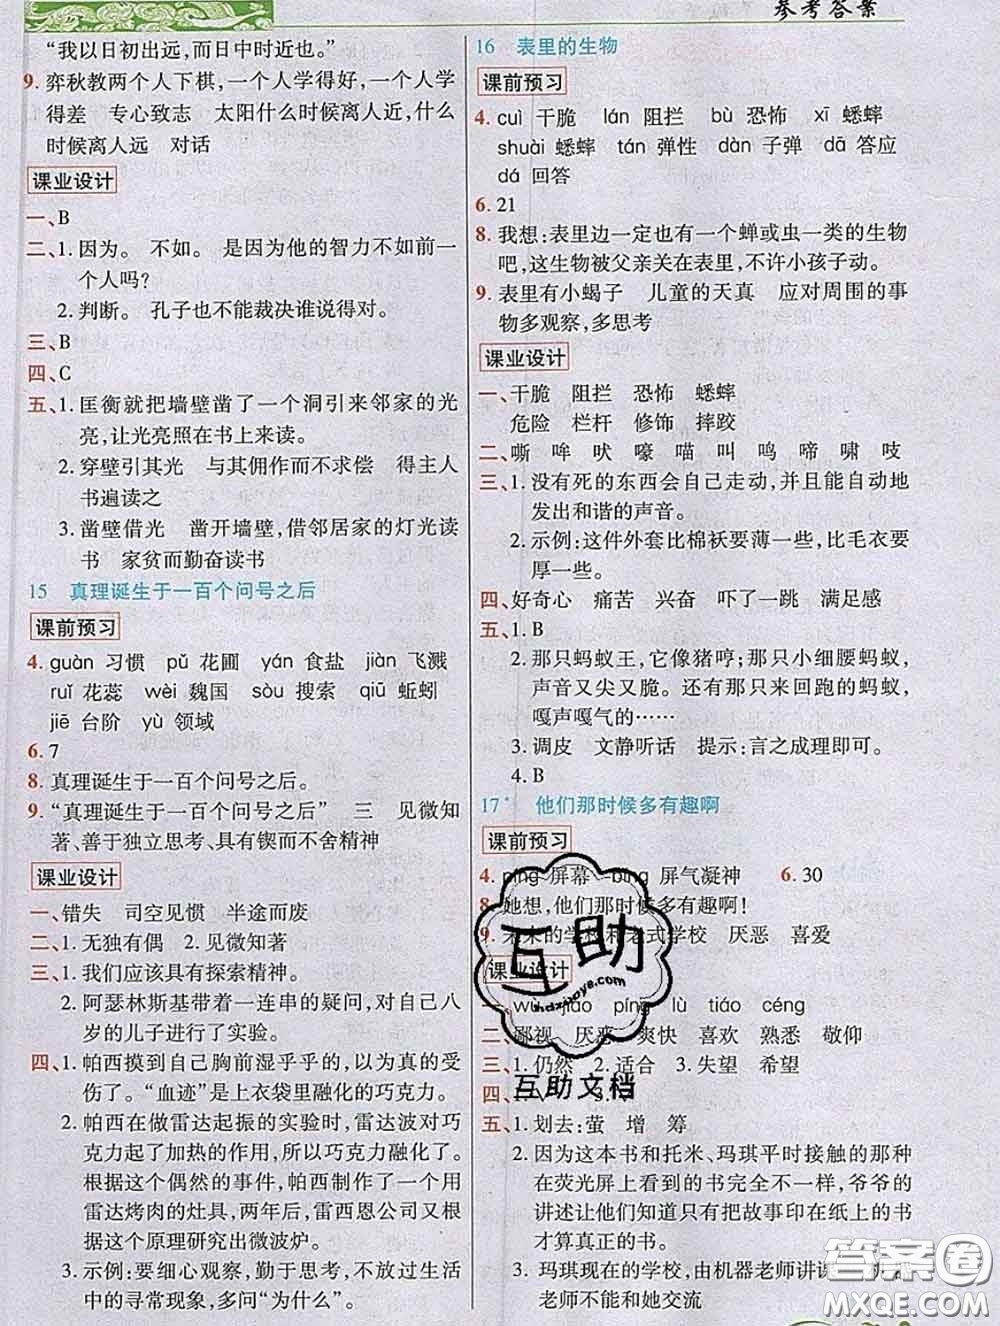 参考答案
“我以日初出远,而日中时近也。”
9. 弈秋教两个人下棋,一个人学得好,一个人学
得差 专心致志 太阳什么时候离人近,什么
时候离人远 对话
课业设计
一、B
二、1. 因为。 不如。 是因为他的智力不如前一
个人吗?
2. 判断。 孔子也不能裁决谁说得对。
三、B
四、C
五、1. 匡衡就把墙壁凿了一个洞引来邻家的光
亮,让光亮照在书上来读。
2. 穿壁引其光 与其佣作而不求偿 得主人
书遍读之
3. 凿壁借光 凿开墙壁,借邻居家的灯光读
书 家贫而勤奋读书
15 真理诞生于一百个问号之后
课前预习
4. guàn 习惯 pǔ 花圃 yán 食盐 jiàn 飞溅
ruǐ 花蕊 wèi 魏国 sòu 搜索 qiū 蚯蚓
jiē 台阶 yù 领域
6. 7
8. 真理诞生于一百个问号之后。
9. “真理诞生于一百个问号之后” 三 见微知
著、善于独立思考、具有锲而不舍精神
课业设计
一、错失 司空见惯 半途而废
二、1. 无独有偶 2. 见微知著
三、1. 我们应该具有探索精神。
2. 阿瑟林斯基带着一连串的疑问,对自己八
岁的儿子进行了实验。
四、1. 帕西摸到自己胸前湿乎乎的,以为真的受
伤了。“血迹”是上衣袋里融化的巧克力。
2. 帕西在做雷达起振的实验时,雷达波对巧
克力起了加热的作用,所以巧克力融化了。
根据这个偶然的事件,帕西制作了一个用
雷达烤肉的灶具,两年后,雷西恩公司根据
这个原理研究出微波炉。
3. 示例:要细心观察,勤于思考,抓住生活中
的寻常现象,多问“为什么”。
16 表里的生物
课前预习
4. cuì 干脆 lán 阻拦 bù 恐怖 xī 蟋蟀
shuài 蟋蟀 tán 弹性 dàn 子弹 dā 答应
dá 回答
6. 21
8. 我想:表里边一定也有一个蝉或虫一类的生物
吧,这生物被父亲关在表里,不许小孩子动。
9. 表里有小蝎子 儿童的天真 应对周围的事
物多观察,多思考
课业设计
一、干脆 阻拦 恐怖 蟋蟀
危险 栏杆 修饰 摔跤
二、嘶 哞 吠 嚎 喵 叫 鸣 啼 啸 吱
三、1. 没有死的东西会自己走动,并且能自动地
发出和谐的声音。
2. 示例:这件外套比棉袄要薄一些,比毛衣要
厚一些。
四、好奇心 痛苦 兴奋 吓了一跳 满足感
五、1. B
2. 那只蚂蚁王,它像猪哼;那只小细腰蚂蚁,
声音又尖又脆。还有那只跑来回跑的蚂蚁,
嘎声嘎气的……
3. 调皮 文静听话 提示:言之成理即可。
4. B
17* 他们那时候多有趣啊
课前预习
4. píng 屏幕 bǐng 屏气凝神 6. 30
8. 她想,他们那时候多有趣啊!
9. 未来的学校和老式学校 厌恶 喜爱
课业设计
一、wù jiǎo píng lù tiáo céng
二、鄙视 厌恶 爽快 喜欢 熟悉 敬仰
三、1. 仍然 2. 适合 3. 失望 希望
四、
五、1. 划去:萤 增 筹
2. 因为这本书和托米、玛琪平时接触的那种
在荧光屏上看到的书完全不一样,爷爷的
讲述让他们知道只有把故事印在纸上的书
才算真正的书。
3. 玛琪现在的学校,由机器老师讲课
老师不能和她交流
互助
shdxuoye.com
互助文档
答案圈
MXQE.COM